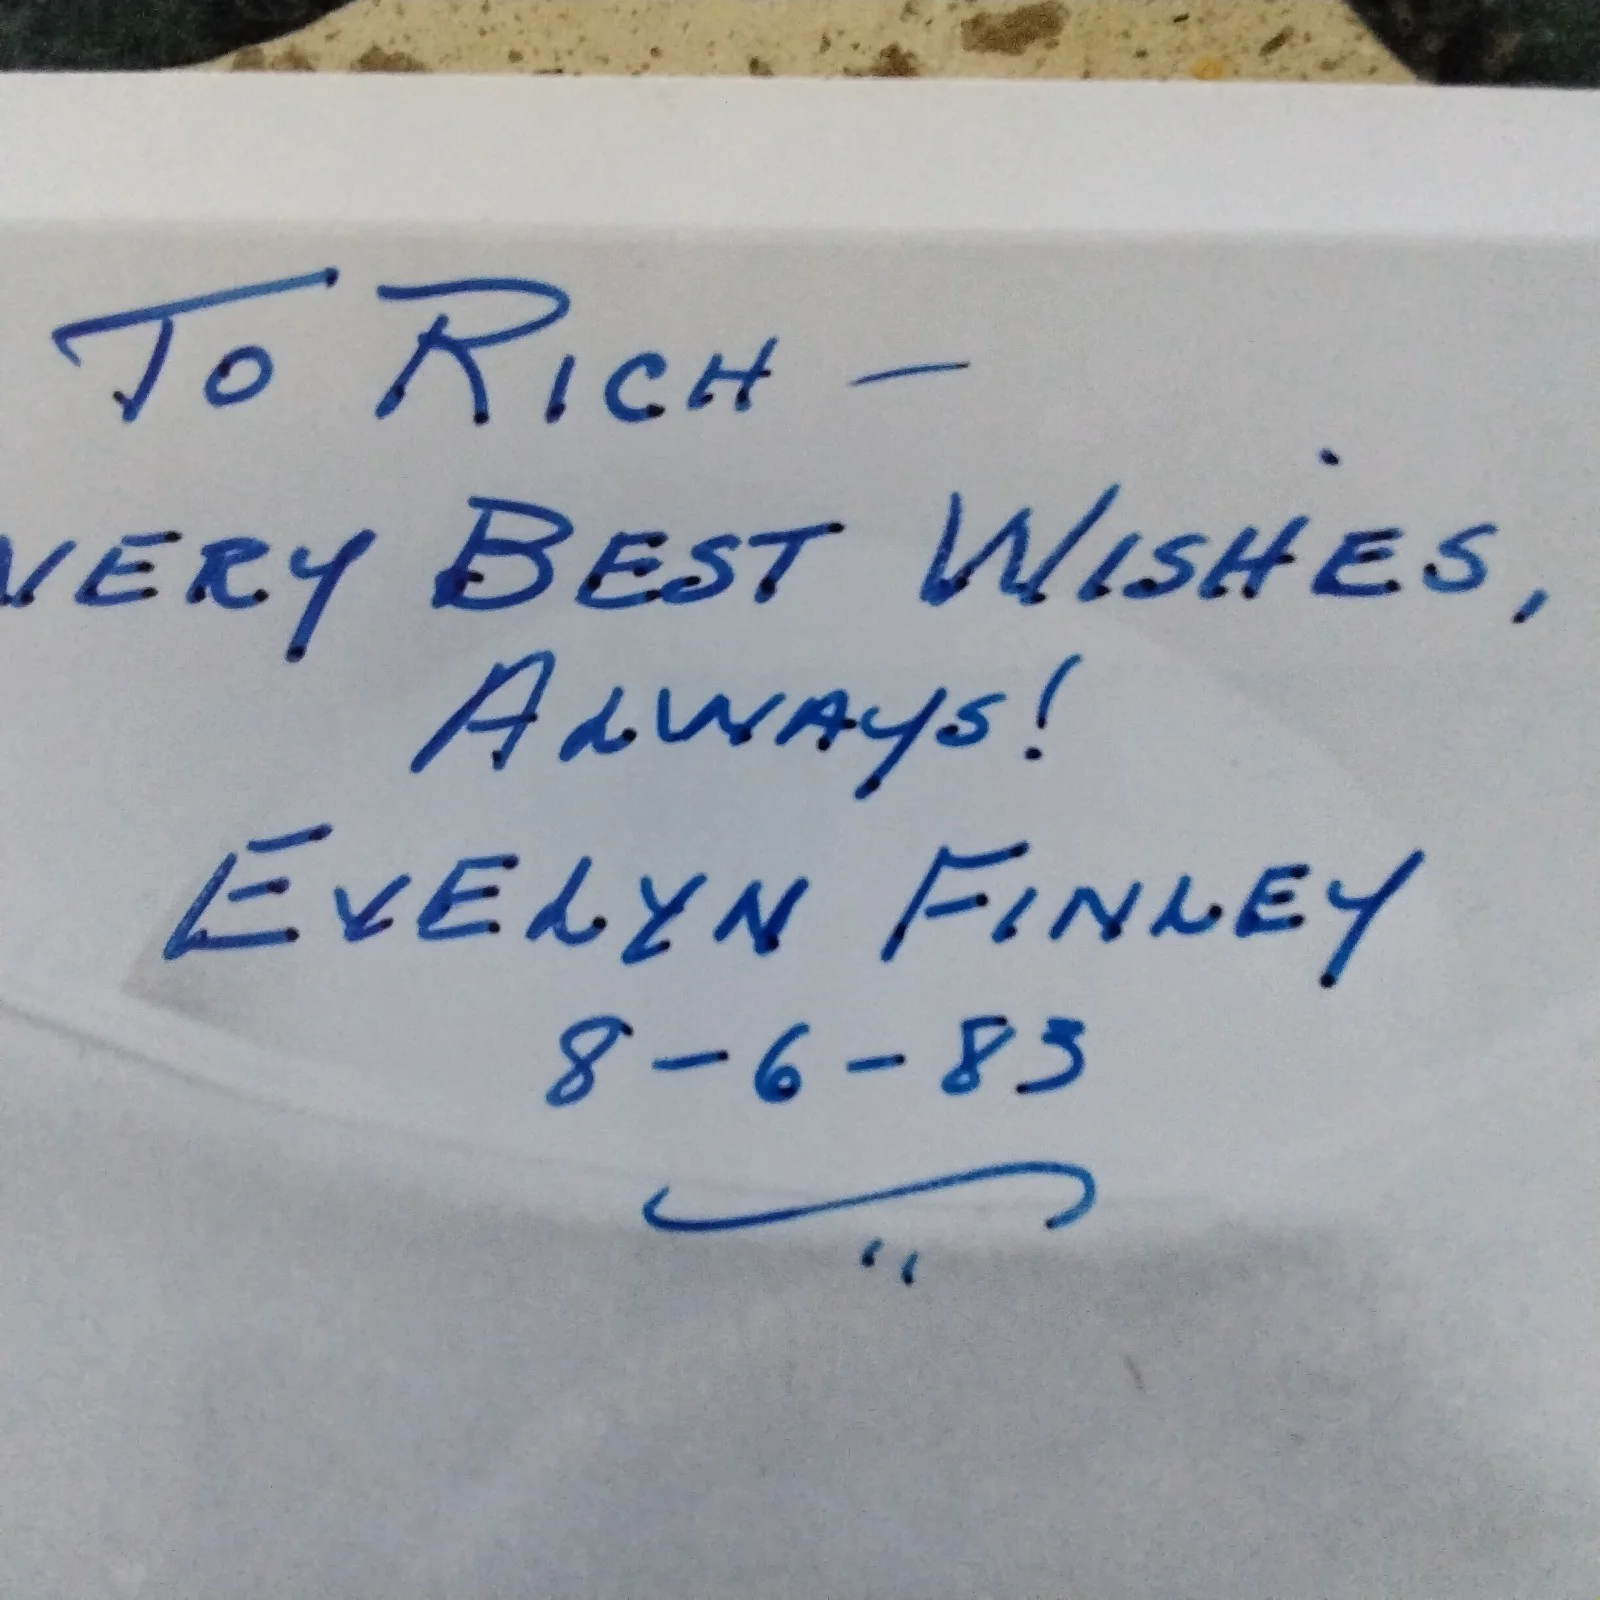 To RICH —
VERY BEST WISHES,
ALWAYS!
EVELYN FINLEY
8-6-83